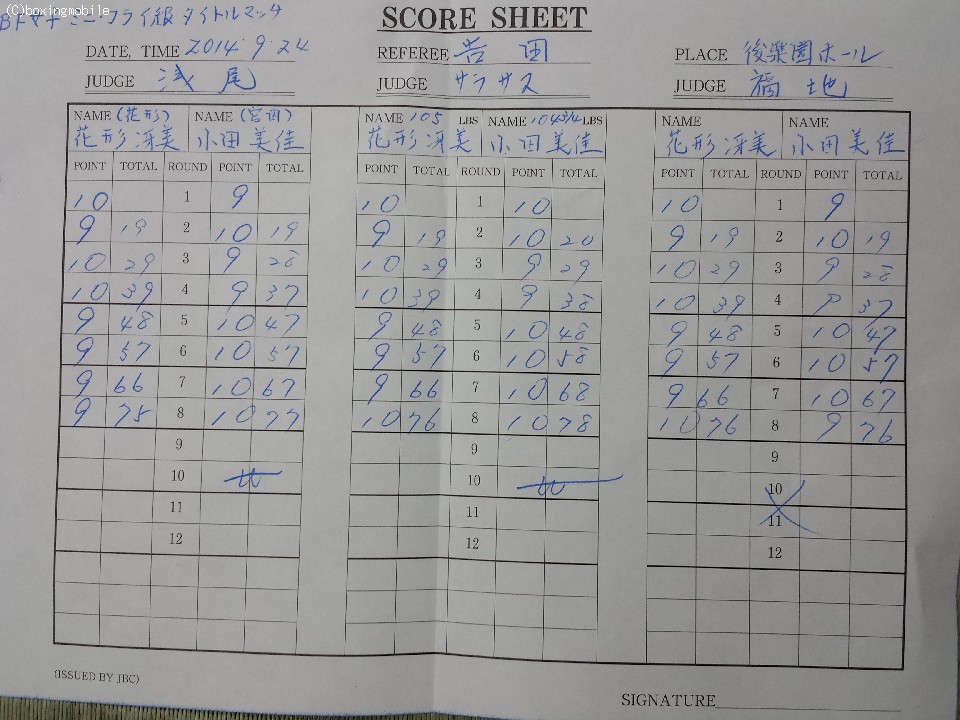 (C)boxingmobile
SCORE SHEET
フライ級 タイトルマッチ
DATE, TIME 2014.9.24 REFEREE 吉田 PLACE 後楽園ホール
JUDGE 浅尾 JUDGE サラサス JUDGE 福地
NAME (花形) NAME (宮田) NAME 105 LBS NAME 104 3/4 LBS NAME NAME
花形 冴美 小田 美佳 花形 冴美 小田 美佳 花形 冴美 小田 美佳
POINT TOTAL ROUND POINT TOTAL POINT TOTAL ROUND POINT TOTAL POINT TOTAL ROUND POINT TOTAL
10 1 9 10 1 10 10 1 9
9 19 2 10 19 9 19 2 10 20 9 19 2 10 19
10 29 3 9 28 10 29 3 9 29 10 29 3 9 28
10 39 4 9 37 10 39 4 9 38 10 39 4 9 37
9 48 5 10 47 9 48 5 10 48 9 48 5 10 47
9 57 6 10 57 9 57 6 10 58 9 57 6 10 57
9 66 7 10 67 9 66 7 10 68 9 66 7 10 67
9 75 8 10 77 10 76 8 10 78 10 76 8 9 76
9 9 9
10 10 10
11 11 11
12 12 12
(ISSUED BY JBC)
SIGNATURE